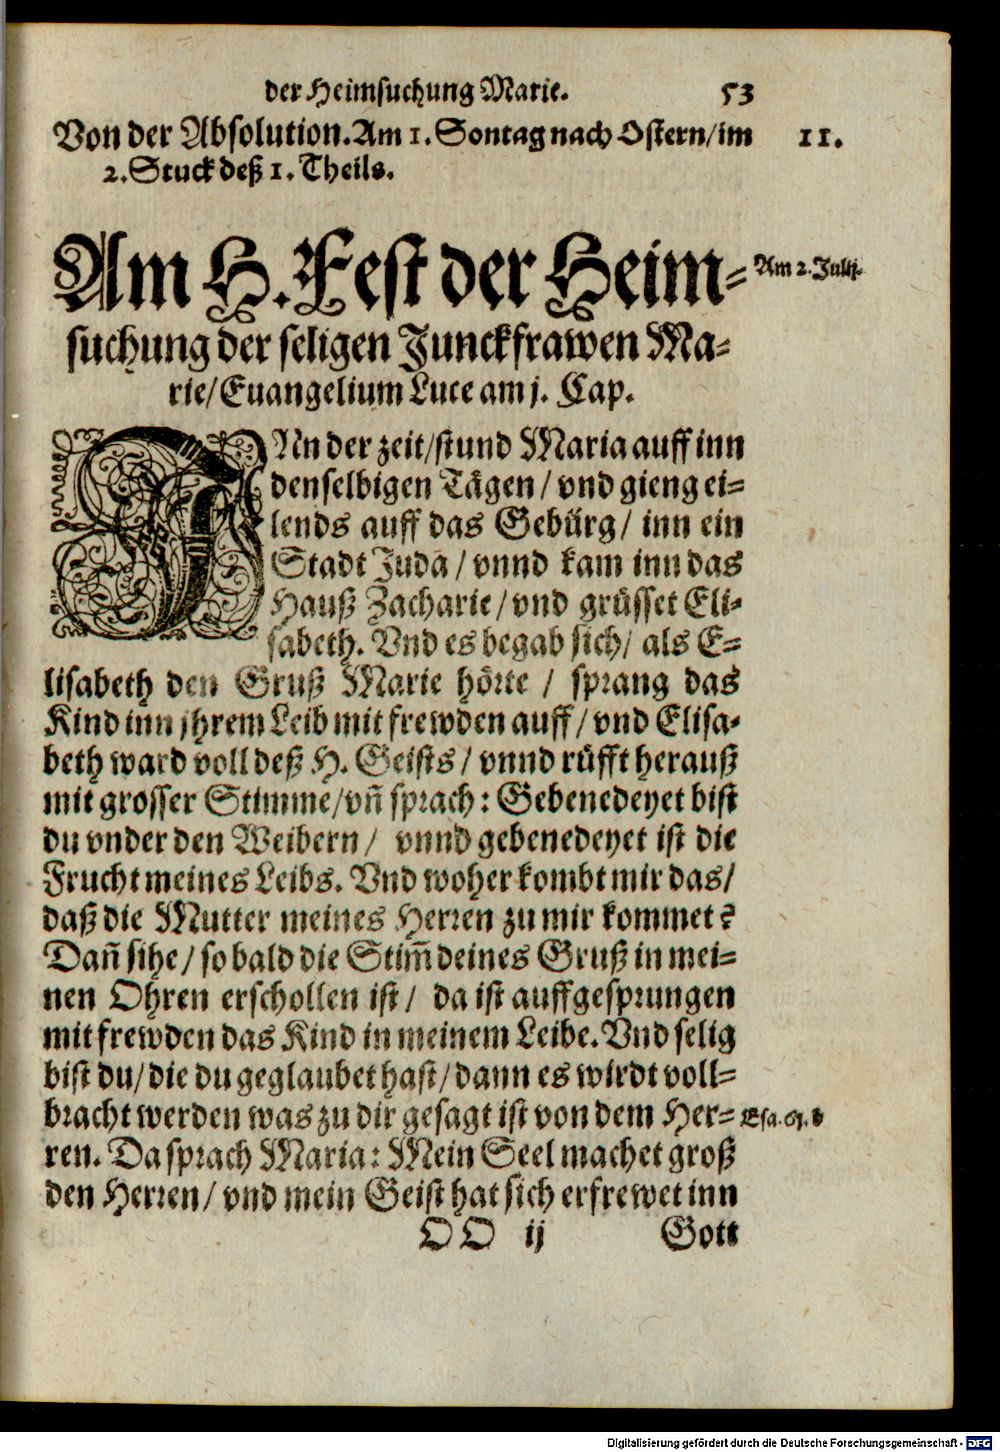 der Heimsuchung Marie. 53
Von der Absolution. Am 1. Sontag nach Ostern/im 11.
2. Stuck deß 1. Theils.
Am H. Fest der Heim-
Am 2. Julij.
suchung der seligen Junckfrawen Ma-
rie/ Euangelium Luce am j. Cap.
JNn der zeit/ stund Maria auff inn
denselbigen Tägen / vnd gieng ei-
lends auff das Gebürg/ inn ein
Stadt Juda / vnnd kam inn das
Hauß Zacharie / vnd grüsset Eli-
sabeth. Vnd es begab sich/ als E-
lisabeth den Gruß Marie hörte / sprang das
Kind inn jhrem Leib mit frewden auff / vnd Elisa-
beth ward voll deß H. Geists / vnnd rüfft herauß
mit grosser Stimme/ vñ sprach: Gebenedeyet bist
du vnder den Weibern / vnnd gebenedeyet ist die
Frucht meines Leibs. Vnd woher kombt mir das/
daß die Mutter meines Herren zu mir kommet?
Dañ sihe / so bald die Stim̃ deines Gruß in mei-
nen Ohren erschollen ist / da ist auffgesprungen
mit frewden das Kind in meinem Leibe. Vnd selig
bist du/ die du geglaubet hast/ dann es wirdt voll-
bracht werden was zu dir gesagt ist von dem Her-
Esa. 61. b
ren. Da sprach Maria: Mein Seel machet groß
den Herren/ vnd mein Geist hat sich erfrewet inn
OO ij Gott
Digitalisierung gefördert durch die Deutsche Forschungsgemeinschaft - DFG